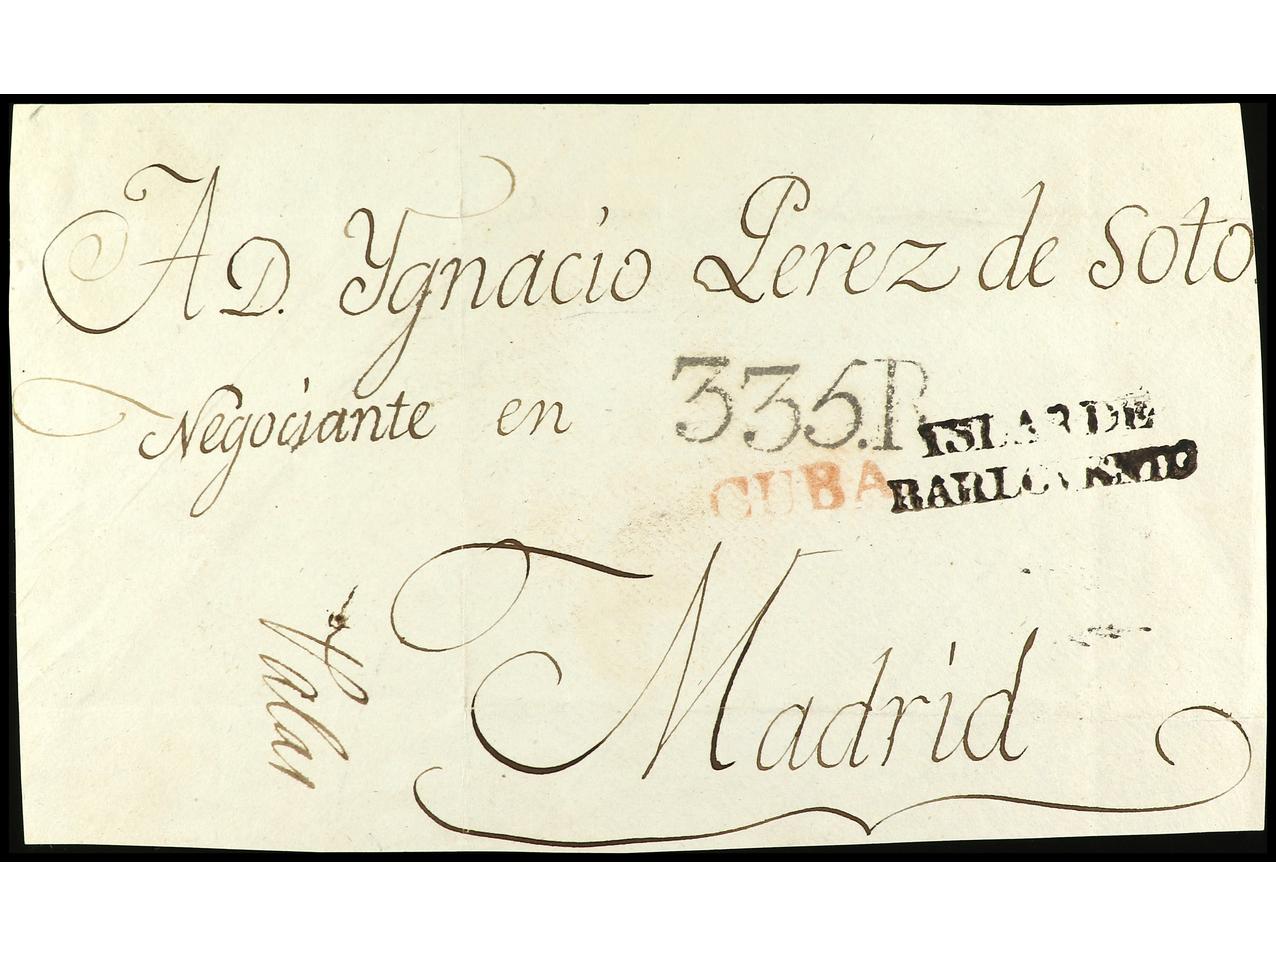 A D. Ygnacio Perez de Soto
Negociante en
335.R
YSLAS DE
BARLOVENTO
CUBA
Madrid